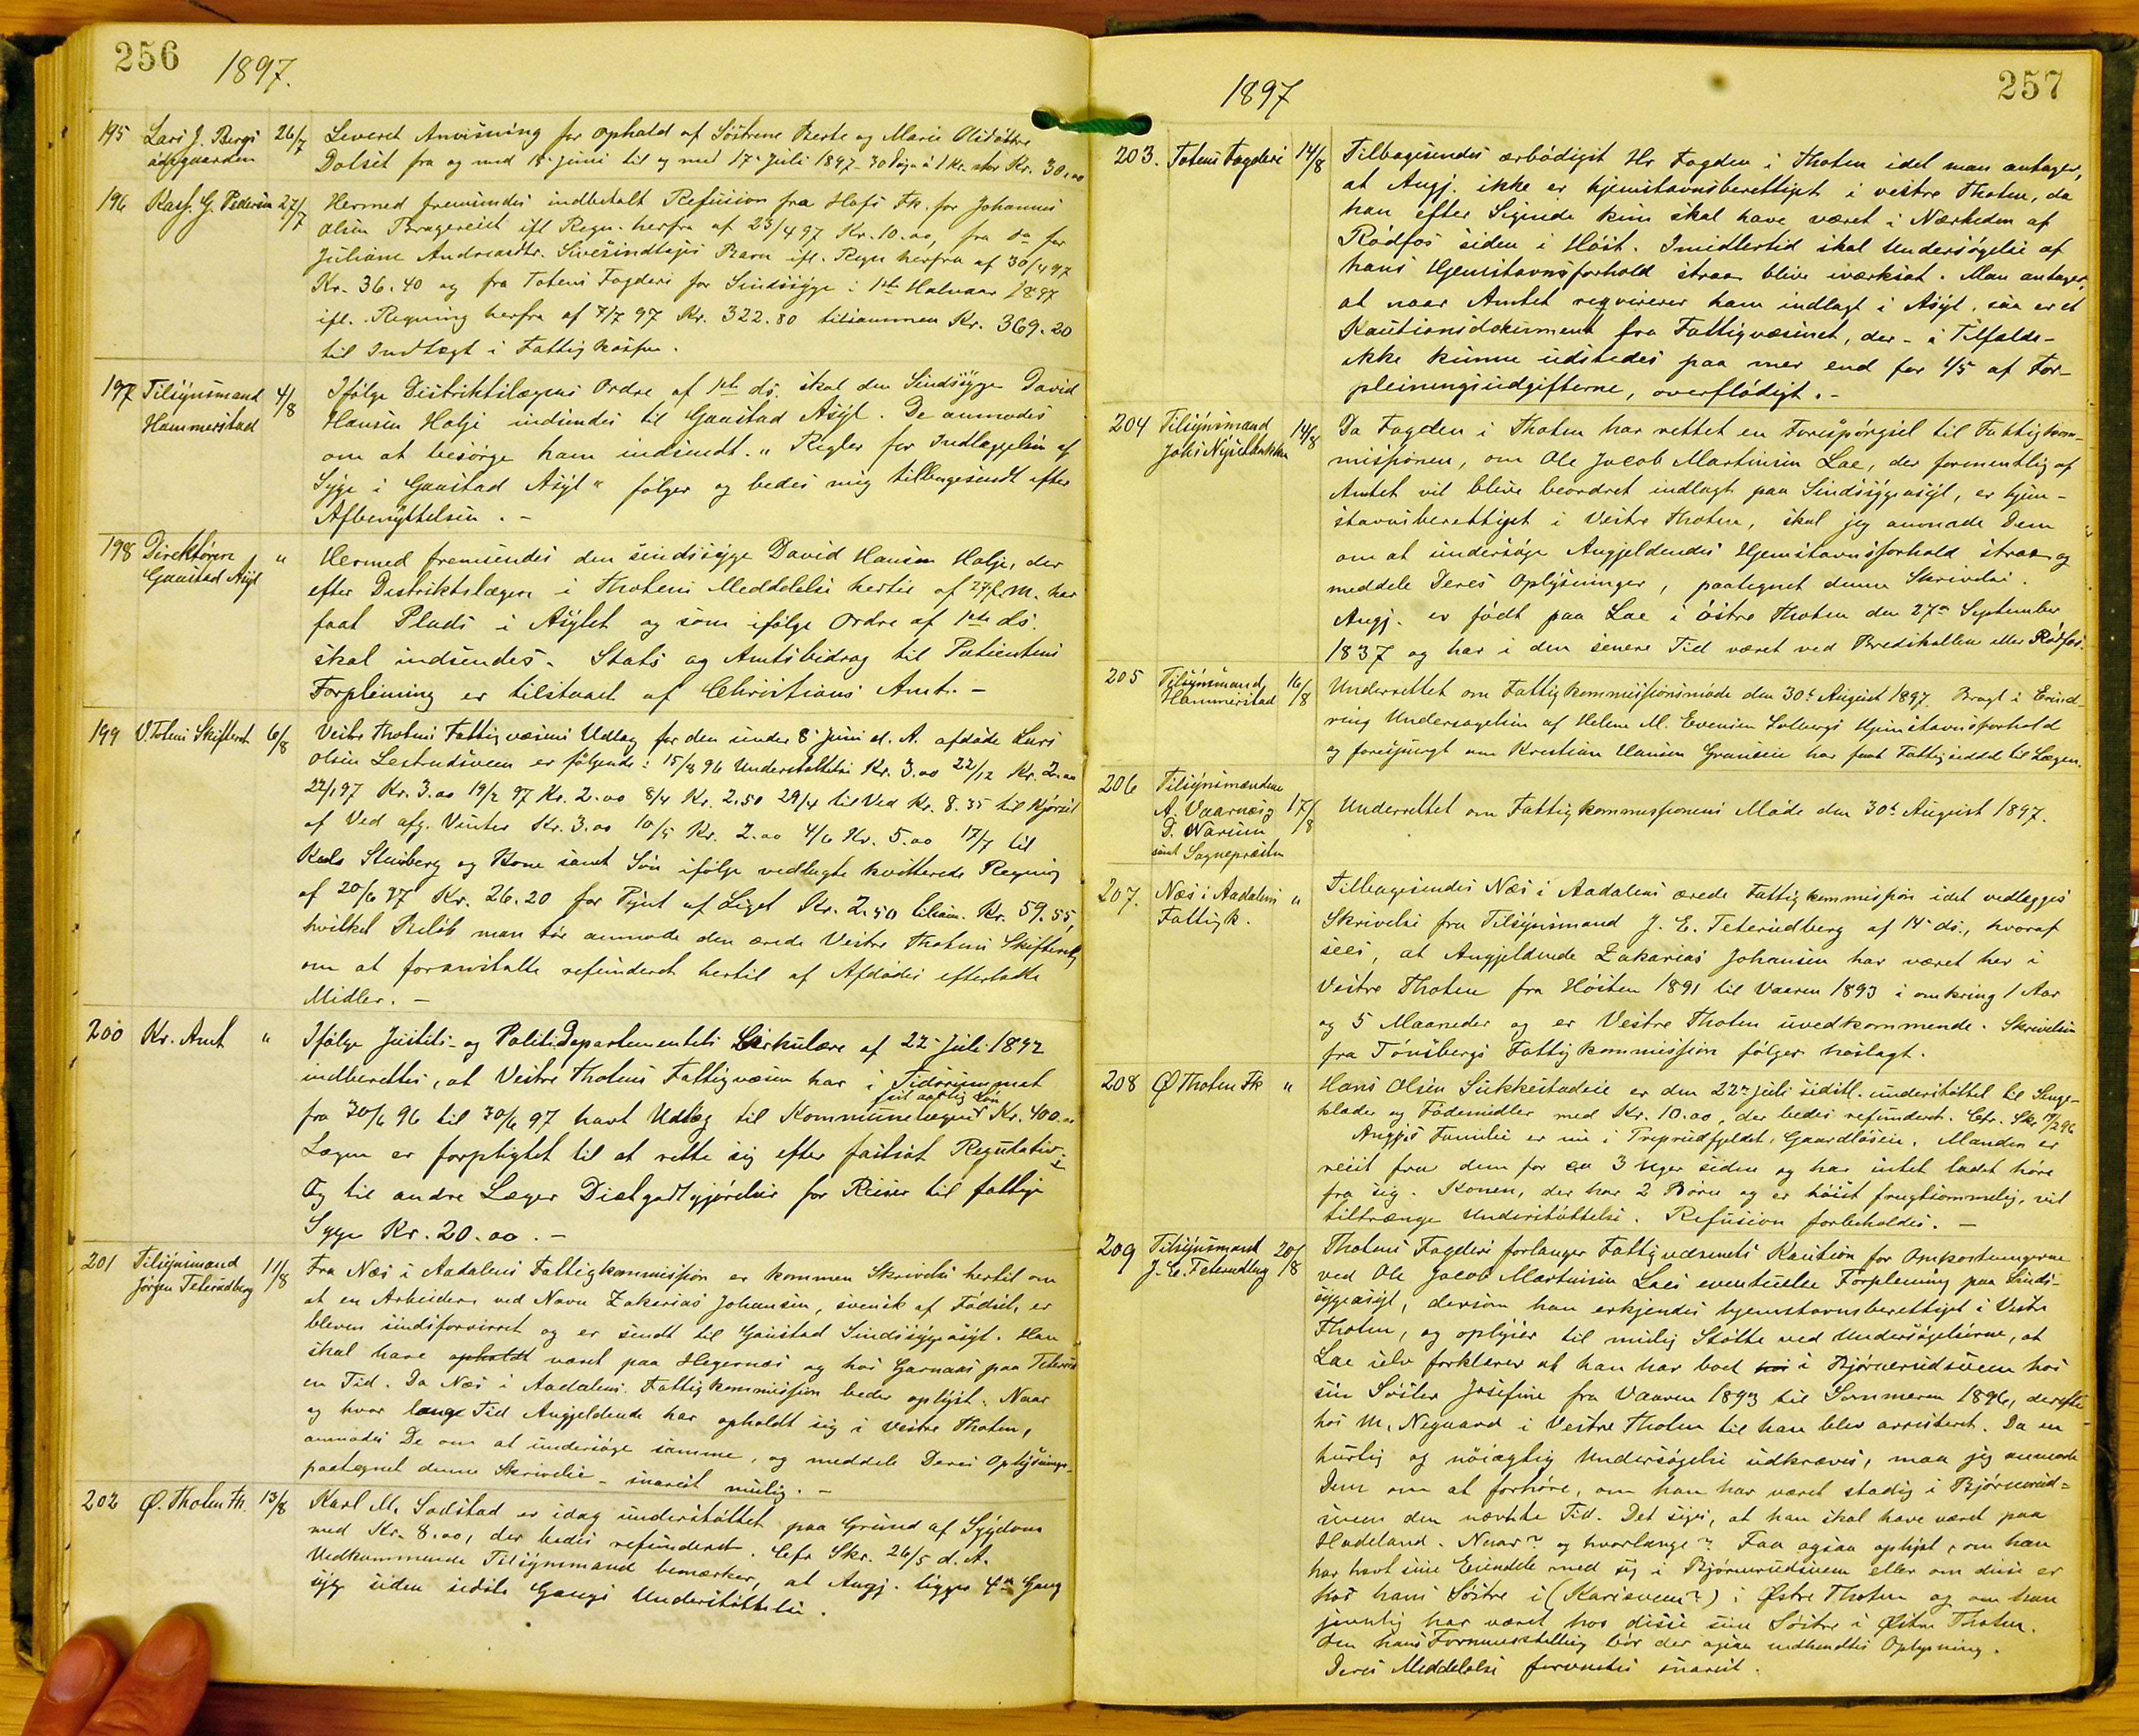 256 1897.
195 Lars J. Bergs 26/7 Leveret Anvisning for ophold af Søstrene Berte og Marie Olsdøttre
ødegaarden Dolset fra og med 18. juni til og med 17. Juli 1897 - 30 Dage à 1 Kr. Kr. 30.00
196 Kass. G. Pedersen 27/7 Hermed fremsendes indbetalt Refusion fra Hofs Fk. for Johannes
Olsen ifl. Regn. herfra af 23/4 97 Kr. 10.00, fra do for
Juliane Andreasdtr. Barn ifl. Regn herfra af 30/4 97
Kr. 36.40 og fra Totens Fogderi for Sindssyge i 1ste Halvaar 1897
ifl. Regning herfra af 7/7 97 Kr. 322.80 tilsammen Kr. 369.20
til Indtægt i Fattigkassen.
197 Tilsynsmand 4/8 Ifølge Distriktslægens Ordre af 1ste ds. skal den Sindssyge David
Hammerstad Hansen Holje indsendes til Gaustad Asyl. De anmodes
om at besørge ham indsendt. "Regler for Indlæggelsen af
Syge i Gaustad Asyl" følger og bedes mig tilbagesendt efter
Afbenyttelsen. -
198 Direktøren " Hermed fremsendes den sindssyge David Hansen Holje, der
Gaustad Asyl efter Distriktslægen i Thotens Meddelelse hertil af 27 f. M. har
faat Plads i Asylet og som ifølge Ordre af 1ste ds.
skal indsendes. Stats og Amtsbidrag til Patientens
Forpleining er tilstaaet af Christians Amt. -
199 V. Totens Skifteret 6/8 Vestre Thotens Fattigvæsens Udlæg for den under 8. Juni d. A. afdøde Lars
Olsen er følgende: 15/8 96 Understøttelse Kr. 3.00 22/12 Kr. 2.00
22/1 97 Kr. 3.00 19/2 97 Kr. 2.00 8/4 Kr. 2.50 29/4 til Ved Kr. 8.35 til Kjørsel
af Ved afg. Vinter Kr. 3.00 10/5 Kr. 2.00 4/6 Kr. 5.00 17/7 til
Stenberg og Kone samt Søn ifølge vedlagte kvitterede Regning
af 20/6 97 Kr. 26.20 for Pynt af Liget Kr. 2.50 tilsam. Kr. 59.55,
hvilket Beløb man tør anmode den ærede Vestre Thotens Skifteret
om at foranstalte refunderet hertil af Afdødes efterladte
Midler. -
200 Kr. Amt " Ifølge Justits- og PolitiDepartementets Cirkulære af 22. Juli 1892
indberettes, at Vestre Thotens Fattigvæsen har i Tidsrummet
fast aarlig Løn
fra 30/6 96 til 30/6 97 havt Udlæg til Kommunelægen Kr. 400.00
Lægen er forpligtet til at rette sig efter fastsat Regulativ.
Og til andre Læger Diætgodtgjørelse for Reiser til fattige
Syge Kr. 20.00. -
201 Tilsynsmand 11/8 Fra Næs i Aadalens Fattigkommission er kommen Skrivelse hertil om
Jørgen Teterudberg at en Arbeider ved Navn Zakarias Johansen, svensk af Fødsel, er
bleven sindsforvirret og er sendt til Gaustad Sindssygeasyl. Han
skal have opholdt været paa Hegernæs og hos Garnaas paa Teterud
en Tid. Da Næs i Aadalens Fattigkommission beder oplyst: Naar
og hvor lange Tid Angjeldende har opholdt sig i Vestre Thoten,
anmodes De om at undersøge samme, og meddele Deres Oplysninger
paategnet denne Skrivelse - snarest mulig. -
202 Ø. Thoten Fk. 13/8 Karl M. Sodstad er idag understøttet paa Grund af Sygdom
med Kr. 8.00, der bedes refunderet. Cfr Skr. 26/5 d. A.
Vedkommende Tilsynsmand bemærker, at Angj. ligger 4de Gang
syg siden sidste Gangs Understøttelse.
1897 257
203. Totens Fogderi 14/8 Tilbagesendes ærbødigst Hr Fogden i Thoten idet man antager,
at Angj. ikke er hjemstavnsberettiget i vestre Thoten, da
han efter Sigende kun skal have været i Nærheden af
Rødfos siden i Høst. Imidlertid skal Undersøgelse af
hans Hjemstavnsforhold straax blive iværksat. Man antager,
at naar Amtet reqvirerer ham indlagt i Asyl, saa er et
Kautionsdokument fra Fattigvæsenet, der - i Tilfælde -
ikke kunne udstedes paa mer end for 4/5 af For-
pleiningsudgifterne, overflødigt. -
204 Tilsynsmand 14/8 Da Fogden i Thoten har rettet en Forespørgsel til Fattigkom-
Johs Nyseth missionen, om Ole Jacob Martinsen Lae, der formentlig af
Amtet vil blive beordret indlagt paa Sindssygeasyl, er hjem-
stavnsberettiget i Vestre Thoten, skal jeg anmode Dem
om at undersøge Angjeldendes Hjemstavnsforhold straax og
meddele Deres Oplysninger, paategnet denne Skrivelse.
Angj. er født paa Lae i østre Thoten den 27de September
1837 og har i den senere Tid været ved Bredskallen eller Rødfos.
205 Tilsynsmand 16/8 Underrettet om Fattigkommissionsmøde den 30te August 1897. Bragt i Erind-
Hammerstad ring Undersøgelsen af Helene M. Evensen Solbergs Hjemstavnsforhold
og forespurgt om Kristian Hansen Graneie har faat Fattigseddel til Lægen.
206 Tilsynsmændene
A. Vaarnæs og 17/8 Underrettet om Fattigkommissionens Møde den 30te August 1897.
P. Narum
samt Sognepræsten
207. Næs i Aadalens " Tilbagesendes Næs i Aadalens ærede Fattigkommission idet vedlægges
Fattigk. Skrivelse fra Tilsynsmand J. E. Teterudberg af 14 ds., hvoraf
sees, at Angjeldende Zakarias Johansen har været her i
Vestre Thoten fra Høsten 1891 til Vaaren 1893 i omkring 1 Aar
og 5 Maaneder og er Vestre Thoten uvedkommende. Skrivelsen
fra Tønsbergs Fattigkommission følger hoslagt.
208 Ø Thoten Fk " Hans Olsen Sukkestadeie er den 22de Juli sidstl. understøttet til Senge-
klæder og Fødemidler med Kr. 10.00, der bedes refunderet. Cfr. Skr 17/2 96
Angjs Familie er nu i Gaardløseie. Manden er
reist fra dem for ca 3 Uger siden og har intet ladet høre
fra sig. Konen, der har 2 Børn og er høist frugtsommelig, vil
tiltrænge Understøttelse. Refusion forbeholdes. -
209 Tilsynsmand 20/8 Thotens Fogderi forlanger Fattigvæsenets Kaution for Omkostningerne
J. E. Teterudberg ved Ole Jacob Martinsen Laes eventuelle Forpleining paa Sinds-
sygeasyl, dersom han erkjendes hjemstavnsberettiget i Vestre
Thoten, og oplyser til mulig Støtte ved Undersøgelserne, at
Lae selv forklarer at han har boet hos i Bjørnerudsveen hos
sin Søster Josefine fra Vaaren 1893 til Sommeren 1896, derefter
hos M. Nygaard i Vestre Thoten til han blev arresteret. Da en
hurtig og nøiagtig Undersøgelse udkræves, maa jeg anmode
Dem om at forhøre, om han har været stadig i Bjørnerud-
sveen den nævnte Tid. Det siges, at han skal have været paa
Hadeland. Naar? og hvorlænge? Faa ogsaa oplyst, om han
har havt sine Eiendele med sig i Bjørnerudsveen eller om disse er
hos hans Søstre i (Karisveen?) i Østre Thoten og om han
jevnlig har været hos disse sine Søstre i Østre Thoten.
Om hans Formuesstilling bør der ogsaa indhentes Oplysning.
Deres Meddelelse forventes snarest.